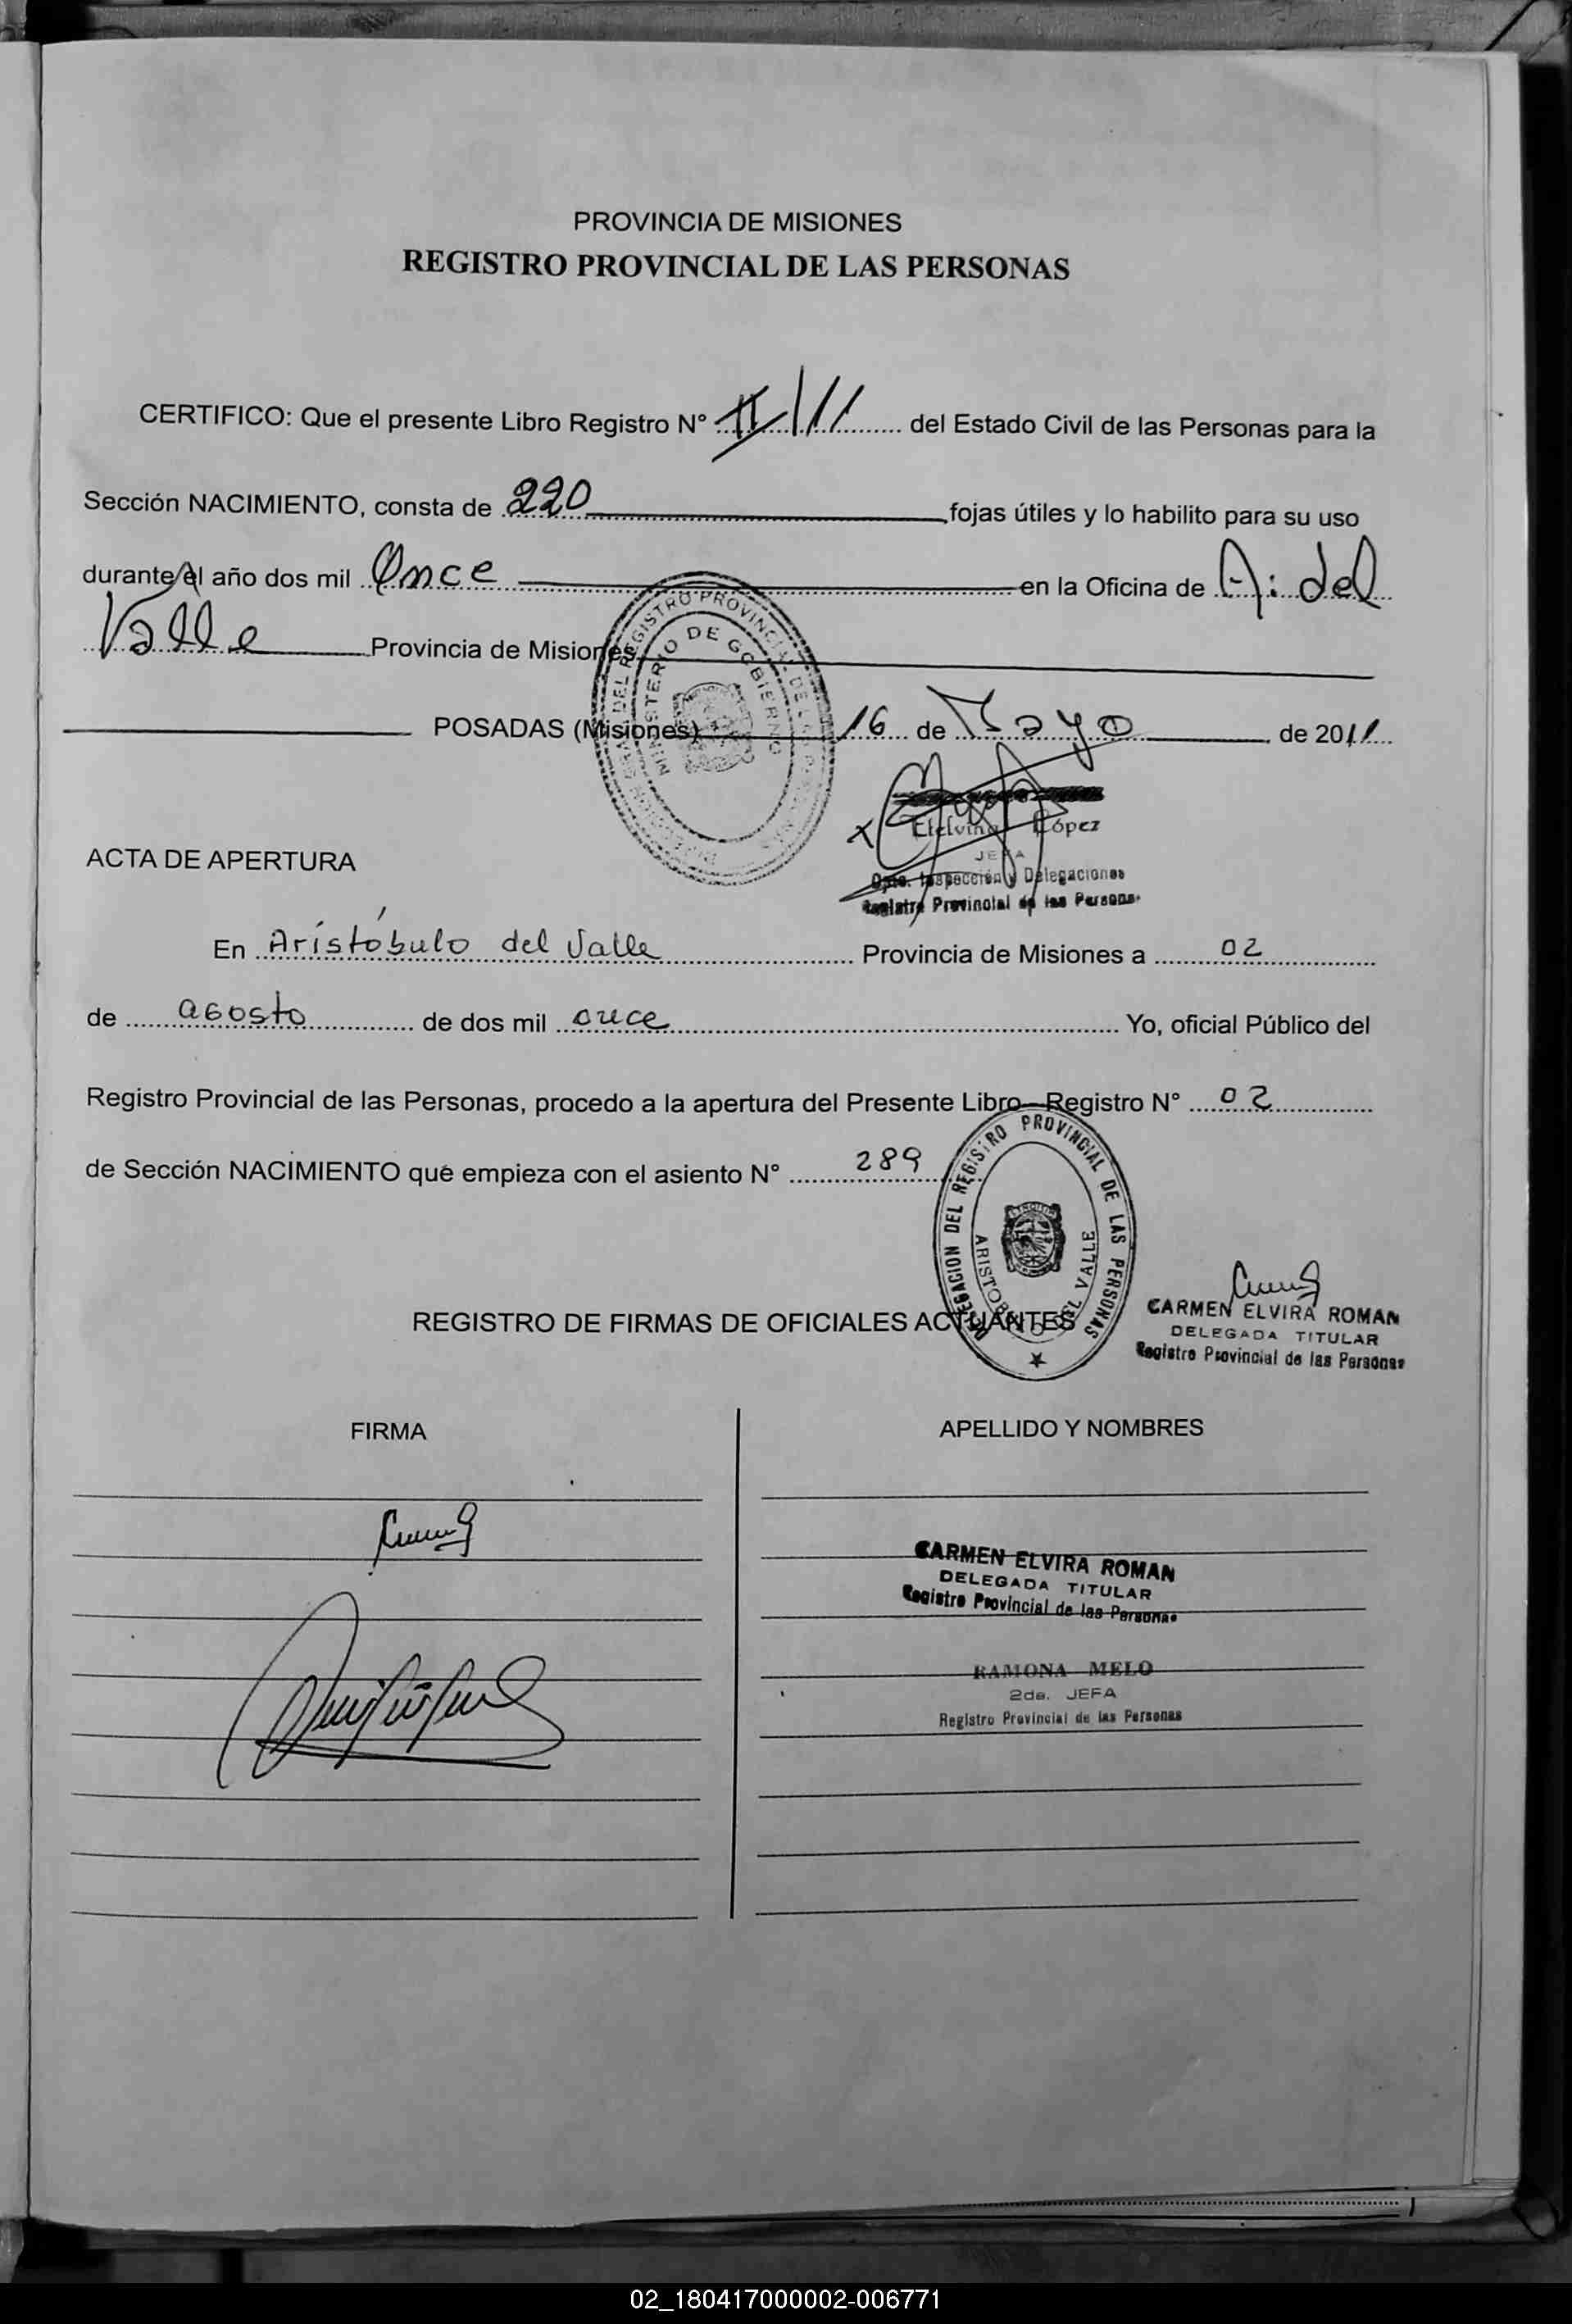 PROVINCIA DE MISIONES
REGISTRO PROVINCIAL DE LAS PERSONAS
CERTIFICO: Que el presente Libro Registro N° II/11 del Estado Civil de las Personas para la
Sección NACIMIENTO, consta de 220 fojas útiles y lo habilito para su uso
durante el año dos mil Once en la Oficina de A. del
Valle Provincia de Misiones
POSADAS (Misiones) 16 de Mayo de 2011
Etelvina López
JEFA
Dpto. Inspección y Delegaciones
Registro Provincial de las Personas
MINISTERIO DE GOBIERNO
ACTA DE APERTURA
En Aristóbulo del Valle Provincia de Misiones a 02
de agosto de dos mil once Yo, oficial Público del
Registro Provincial de las Personas, procedo a la apertura del Presente Libro - Registro N° 02
de Sección NACIMIENTO que empieza con el asiento N° 289
DELEGACION DEL REGISTRO PROVINCIAL DE LAS PERSONAS
ARISTOBULO DEL VALLE
CARMEN ELVIRA ROMAN
DELEGADA TITULAR
Registro Provincial de las Personas
REGISTRO DE FIRMAS DE OFICIALES ACTUANTES
FIRMA APELLIDO Y NOMBRES
CARMEN ELVIRA ROMAN
DELEGADA TITULAR
Registro Provincial de las Personas
RAMONA MELO
2da. JEFA
Registro Provincial de las Personas
02_180417000002-006771